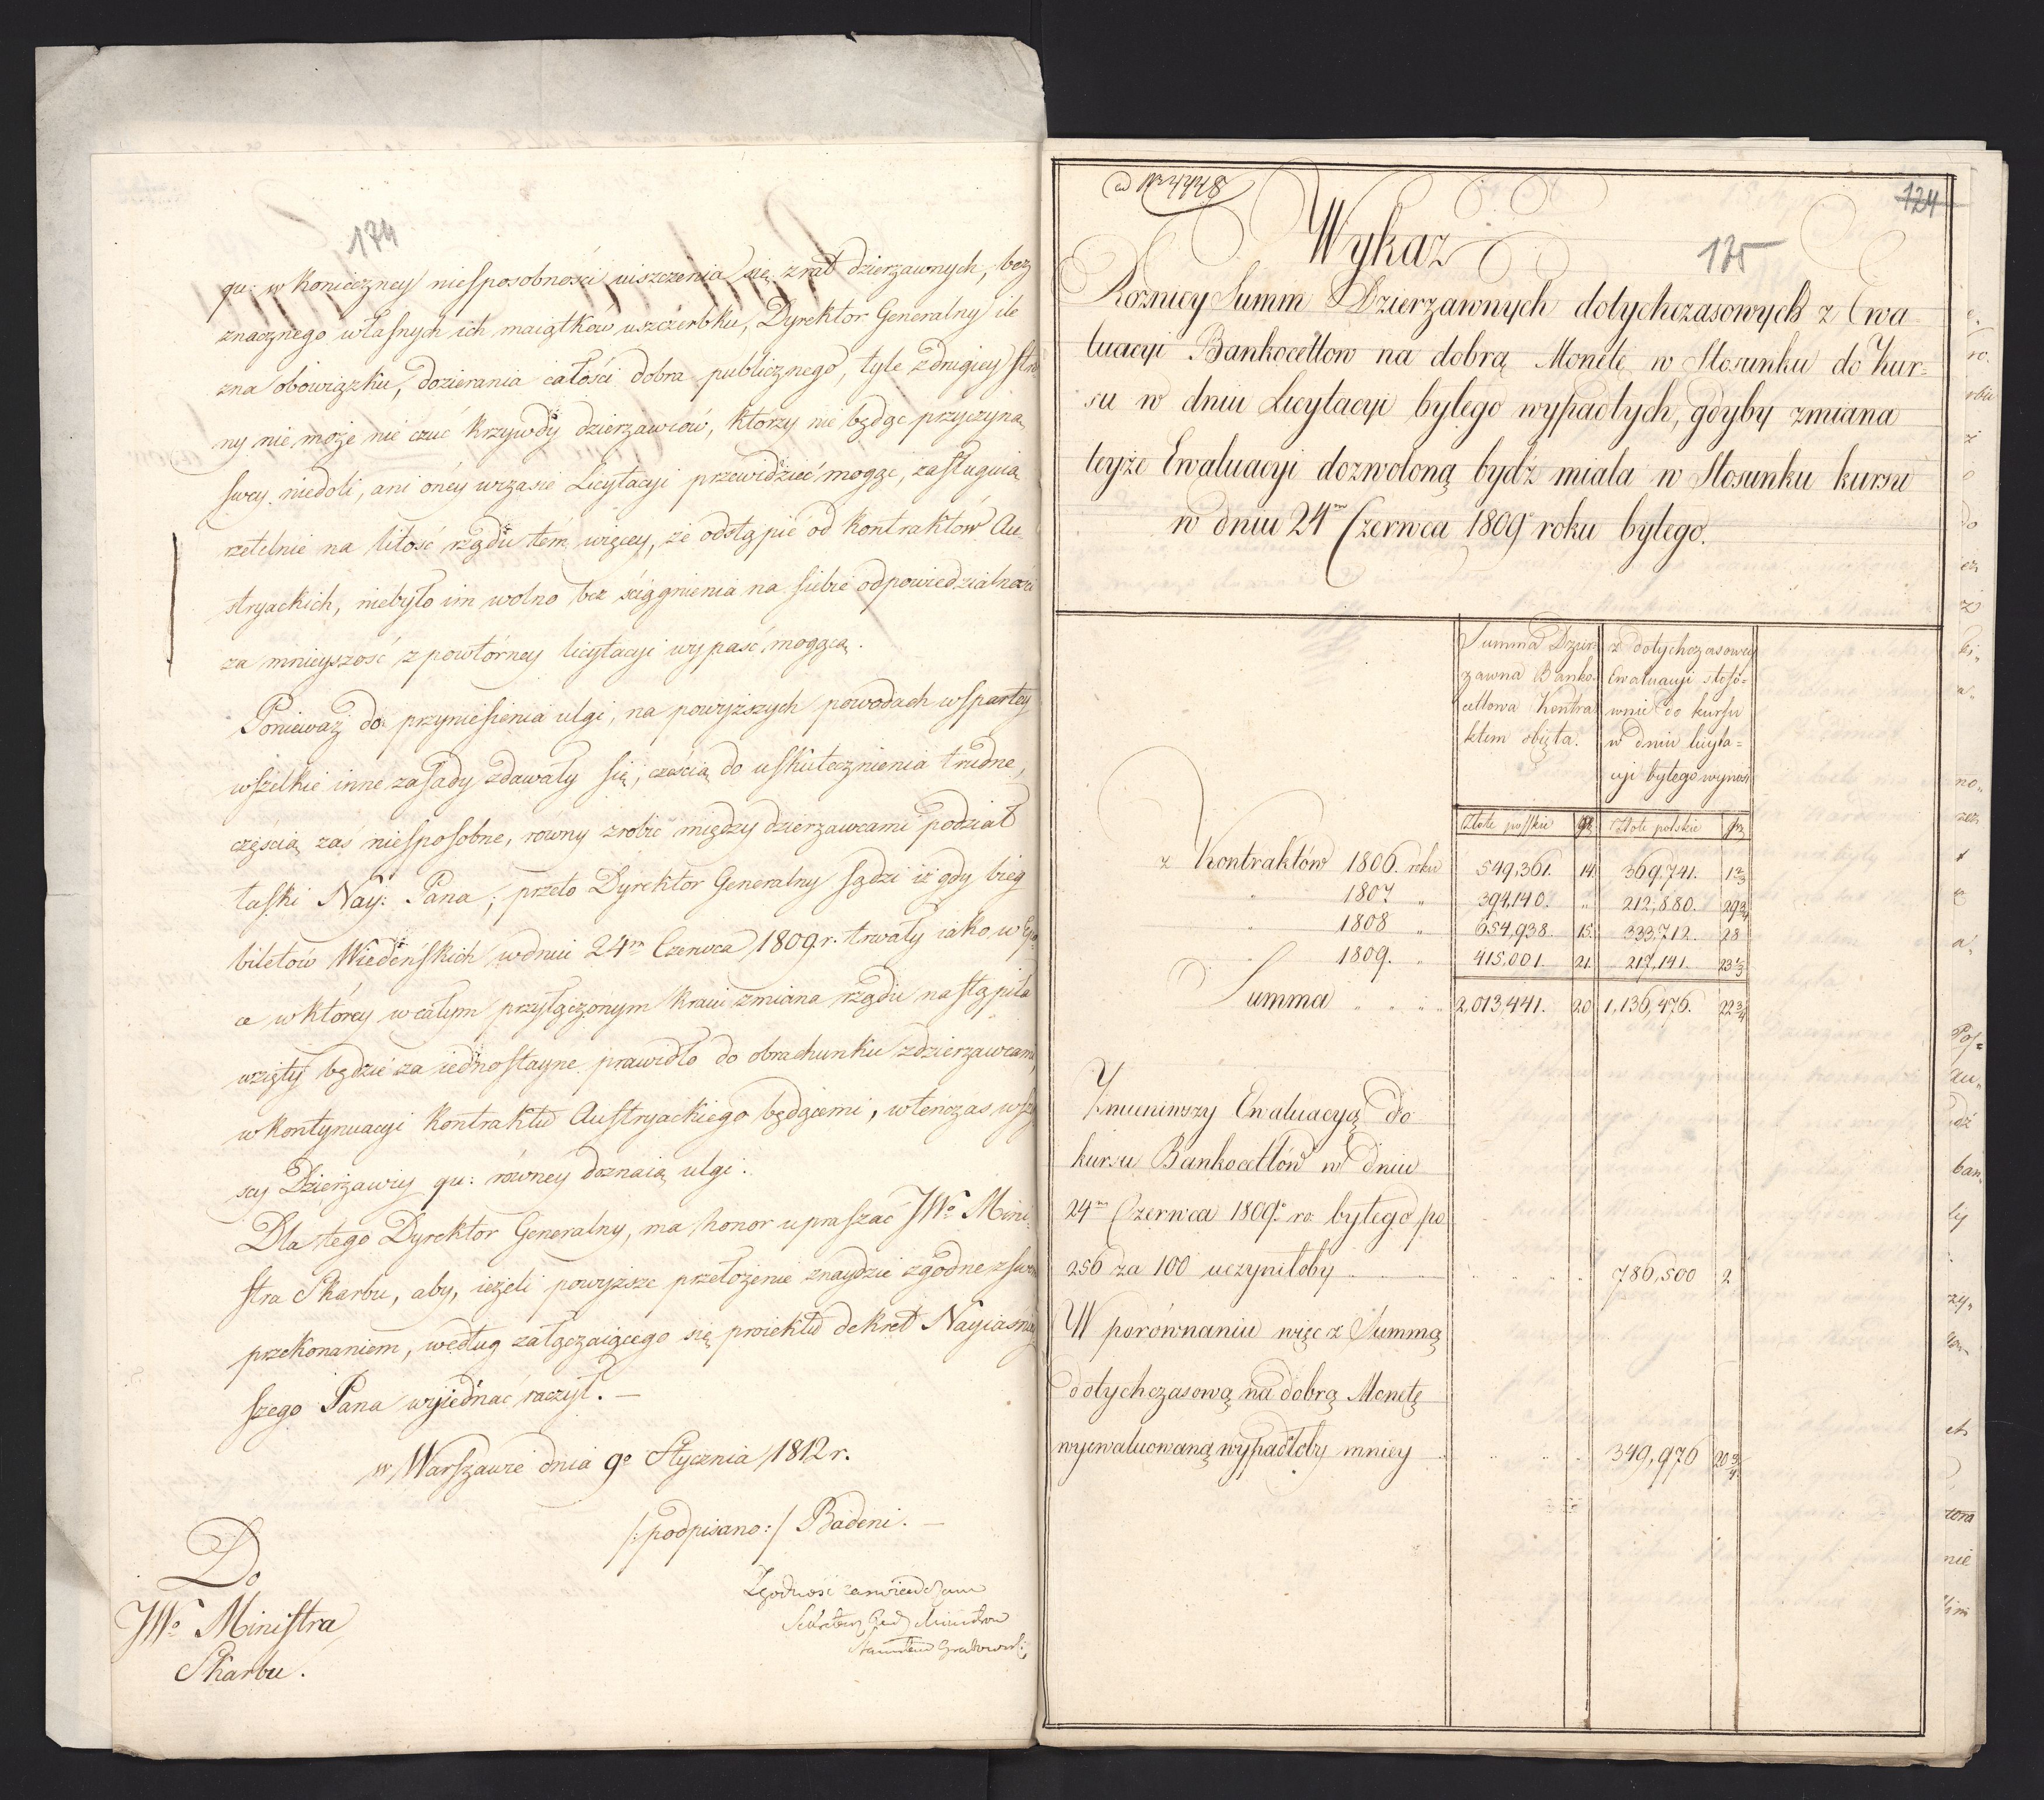 174
qu: w konieczney niesposobności uiszczenia się z rat dzierżawnych, bez
znacznego własnych ich maiątków uszczerbku, Dyrektor Generalny ile
zna obowiązku, dozierania całości dobra publicznego, tyle z drugiey stro
ny nie może nie czuć krzywdy dzierżawców, ktorzy nie będąc przyczyną
swey niedoli, ani oney w czasie Licytacyi przewidzieć mogąc, zasługuią
rzetelnie na litość rządu tém więcey, że odstąpić od kontraktów Au-
stryackich, niebyło im wolno bez ściągnienia na siebie odpowiedzialności
za mnieyszość z powtórney licytacyi wypaść mogącą.
Ponieważ do przyniesienia ulgi, na powyższych powodach wspartey
wszelkie inne zasady zdawały się, częścią do uskutecznienia trudne,
częścią zaś niesposobne, rowny zrobić między dzierzawcami podział
łaski Nay: Pana, przeto Dyrektor Generalny sądzi iż gdy bieg
biletów Wiedeńskich w dniu 24m Czerwca 1809 r. trwały iako w Epo
ce w którey w całym przyłączonym kraiu zmiana rządu nastąpiła
wzięty będzie za iednostayne prawidło do obrachunku z dzierzawcami,
w kontynuacyi kontraktu Austryackiego będącemi, wtenczas wszy
scy Dzierżawcy qu: równey doznaią ulgi.
Dla tego Dyrektor Generalny, ma honor upraszać JWo Mini
stra Skarbu, aby, ieżeli powyższe przełożenie znaydzie zgodne z swem
przekonaniem, według załączaiącego się proiektu dekret Nayiaśniey
szego Pana wyiednać raczył. —
w Warszawie dnia 9o Stycznia 1812 r.
/:podpisano:/ Badeni. —
Zgodność zaświadczam
Sekretarz Rady Ministrów
Stanisław Grabowski
Do
JWo Ministra
Skarbu.
ad Nr 4448
124
Wykaz
175
Roznicy Summ Dzierzawnych dotychczasowych z Ewa-
luacyi Bankocetlow na dobrą Monetę w Stosunku do Kur=
su w dniu Licytacyi byłego wypadłych, gdyby zmiana
teyże Ewaluacyi dozwoloną bydź miala w Stosunku kursu
w dniu 24m Czerwca 1809 roku byłego.
Summa Dzier
zawna Banko-
cetlowa Kontra
ktem obięta.
z dotychczasowey
Ewaluacyi stoso=
wnie do kursu
w dniu licyta=
cyi byłego wynosi
Złote polskie gr. Złote polskie gr.
z Kontraktów 1806. roku 549,361. 14. 369,741. 1 2/3
" 1807 " 394,140. " 212,880. 29 3/4
" 1808 " 654,938. 15. 333,712. 28
" 1809. " 415,001. 21. 217,141. 23 1/3
Summa " " " " 2,013,441. 20 1,136,476. 22 3/4
Zmieniwszy Ewaluacyą do
kursu Bankocetlów w dniu
24m Czerwca 1809o ro: byłego po
256 za 100 uczyniłoby 786,500 2
W porównaniu więc z Summą
dotychczasową na dobrą Monetę
wyewaluowaną wypadłoby mniey 349,976 20 3/4